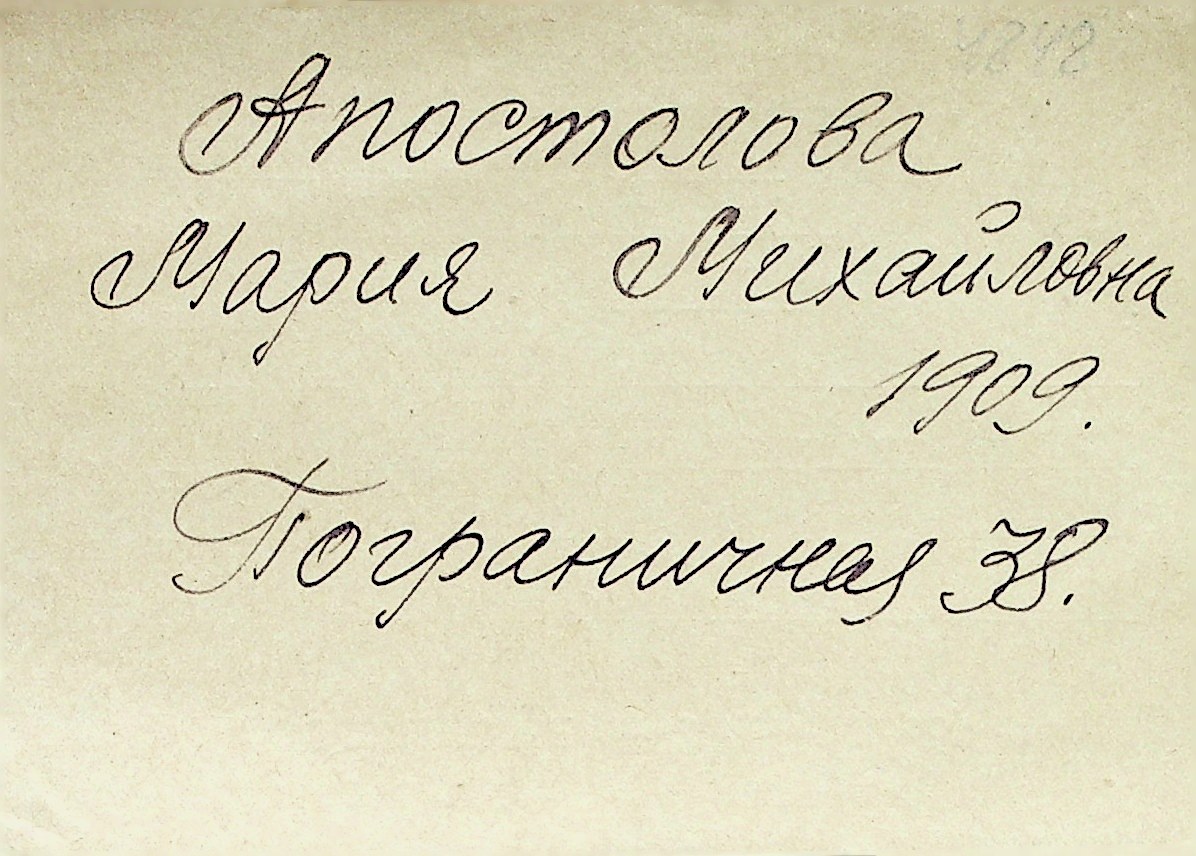 1242
Апостолова
Мария Михайловна
1909.
Пограничная 38.